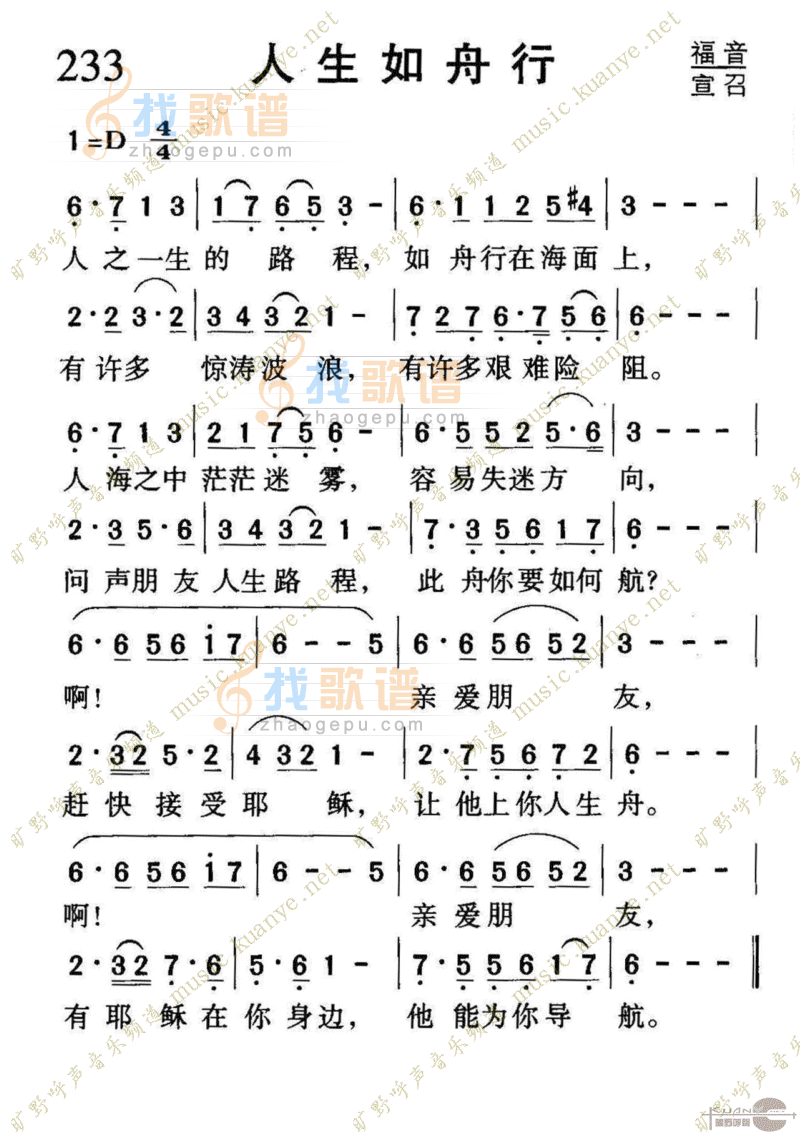 233 人生如舟行 福音
宣召
1=D 4/4
6·7 1 3 | 1 7 6 5 3 - | 6·1 1 2 5 #4 | 3 - - - |
人之一生的 路 程, 如 舟行在海面上,
2·2 3·2 | 3 4 3 2 1 - | 7 2 7 6·7 5 6 | 6 - - - |
有许多 惊涛波 浪, 有许多艰难险 阻。
6·7 1 3 | 2 1 7 5 6 - | 6·5 5 2 5·6 | 3 - - - |
人海之中茫茫迷 雾, 容易失迷方 向,
2·3 5·6 | 3 4 3 2 1 - | 7·3 5 6 1 7 | 6 - - - |
问声朋友人生路程, 此舟你要如何航?
6·6 5 6 i 7 | 6 - - 5 | 6·6 5 6 5 2 | 3 - - - |
啊! 亲爱朋 友,
2·3 2 5·2 | 4 3 2 1 - | 2·7 5 6 7 2 | 6 - - - |
赶快接受耶 稣, 让他上你人生舟。
6·6 5 6 i 7 | 6 - - 5 | 6·6 5 6 5 2 | 3 - - - |
啊! 亲爱朋 友,
2·3 2 7·6 | 5·6 1 - | 7·5 5 6 1 7 | 6 - - - ‖
有耶稣在你身边, 他能为你导 航。
找歌谱
zhaogepu.com
找歌谱
zhaogepu.com
找歌谱
zhaogepu.com
旷野呼声音乐频道 music.kuanye.net